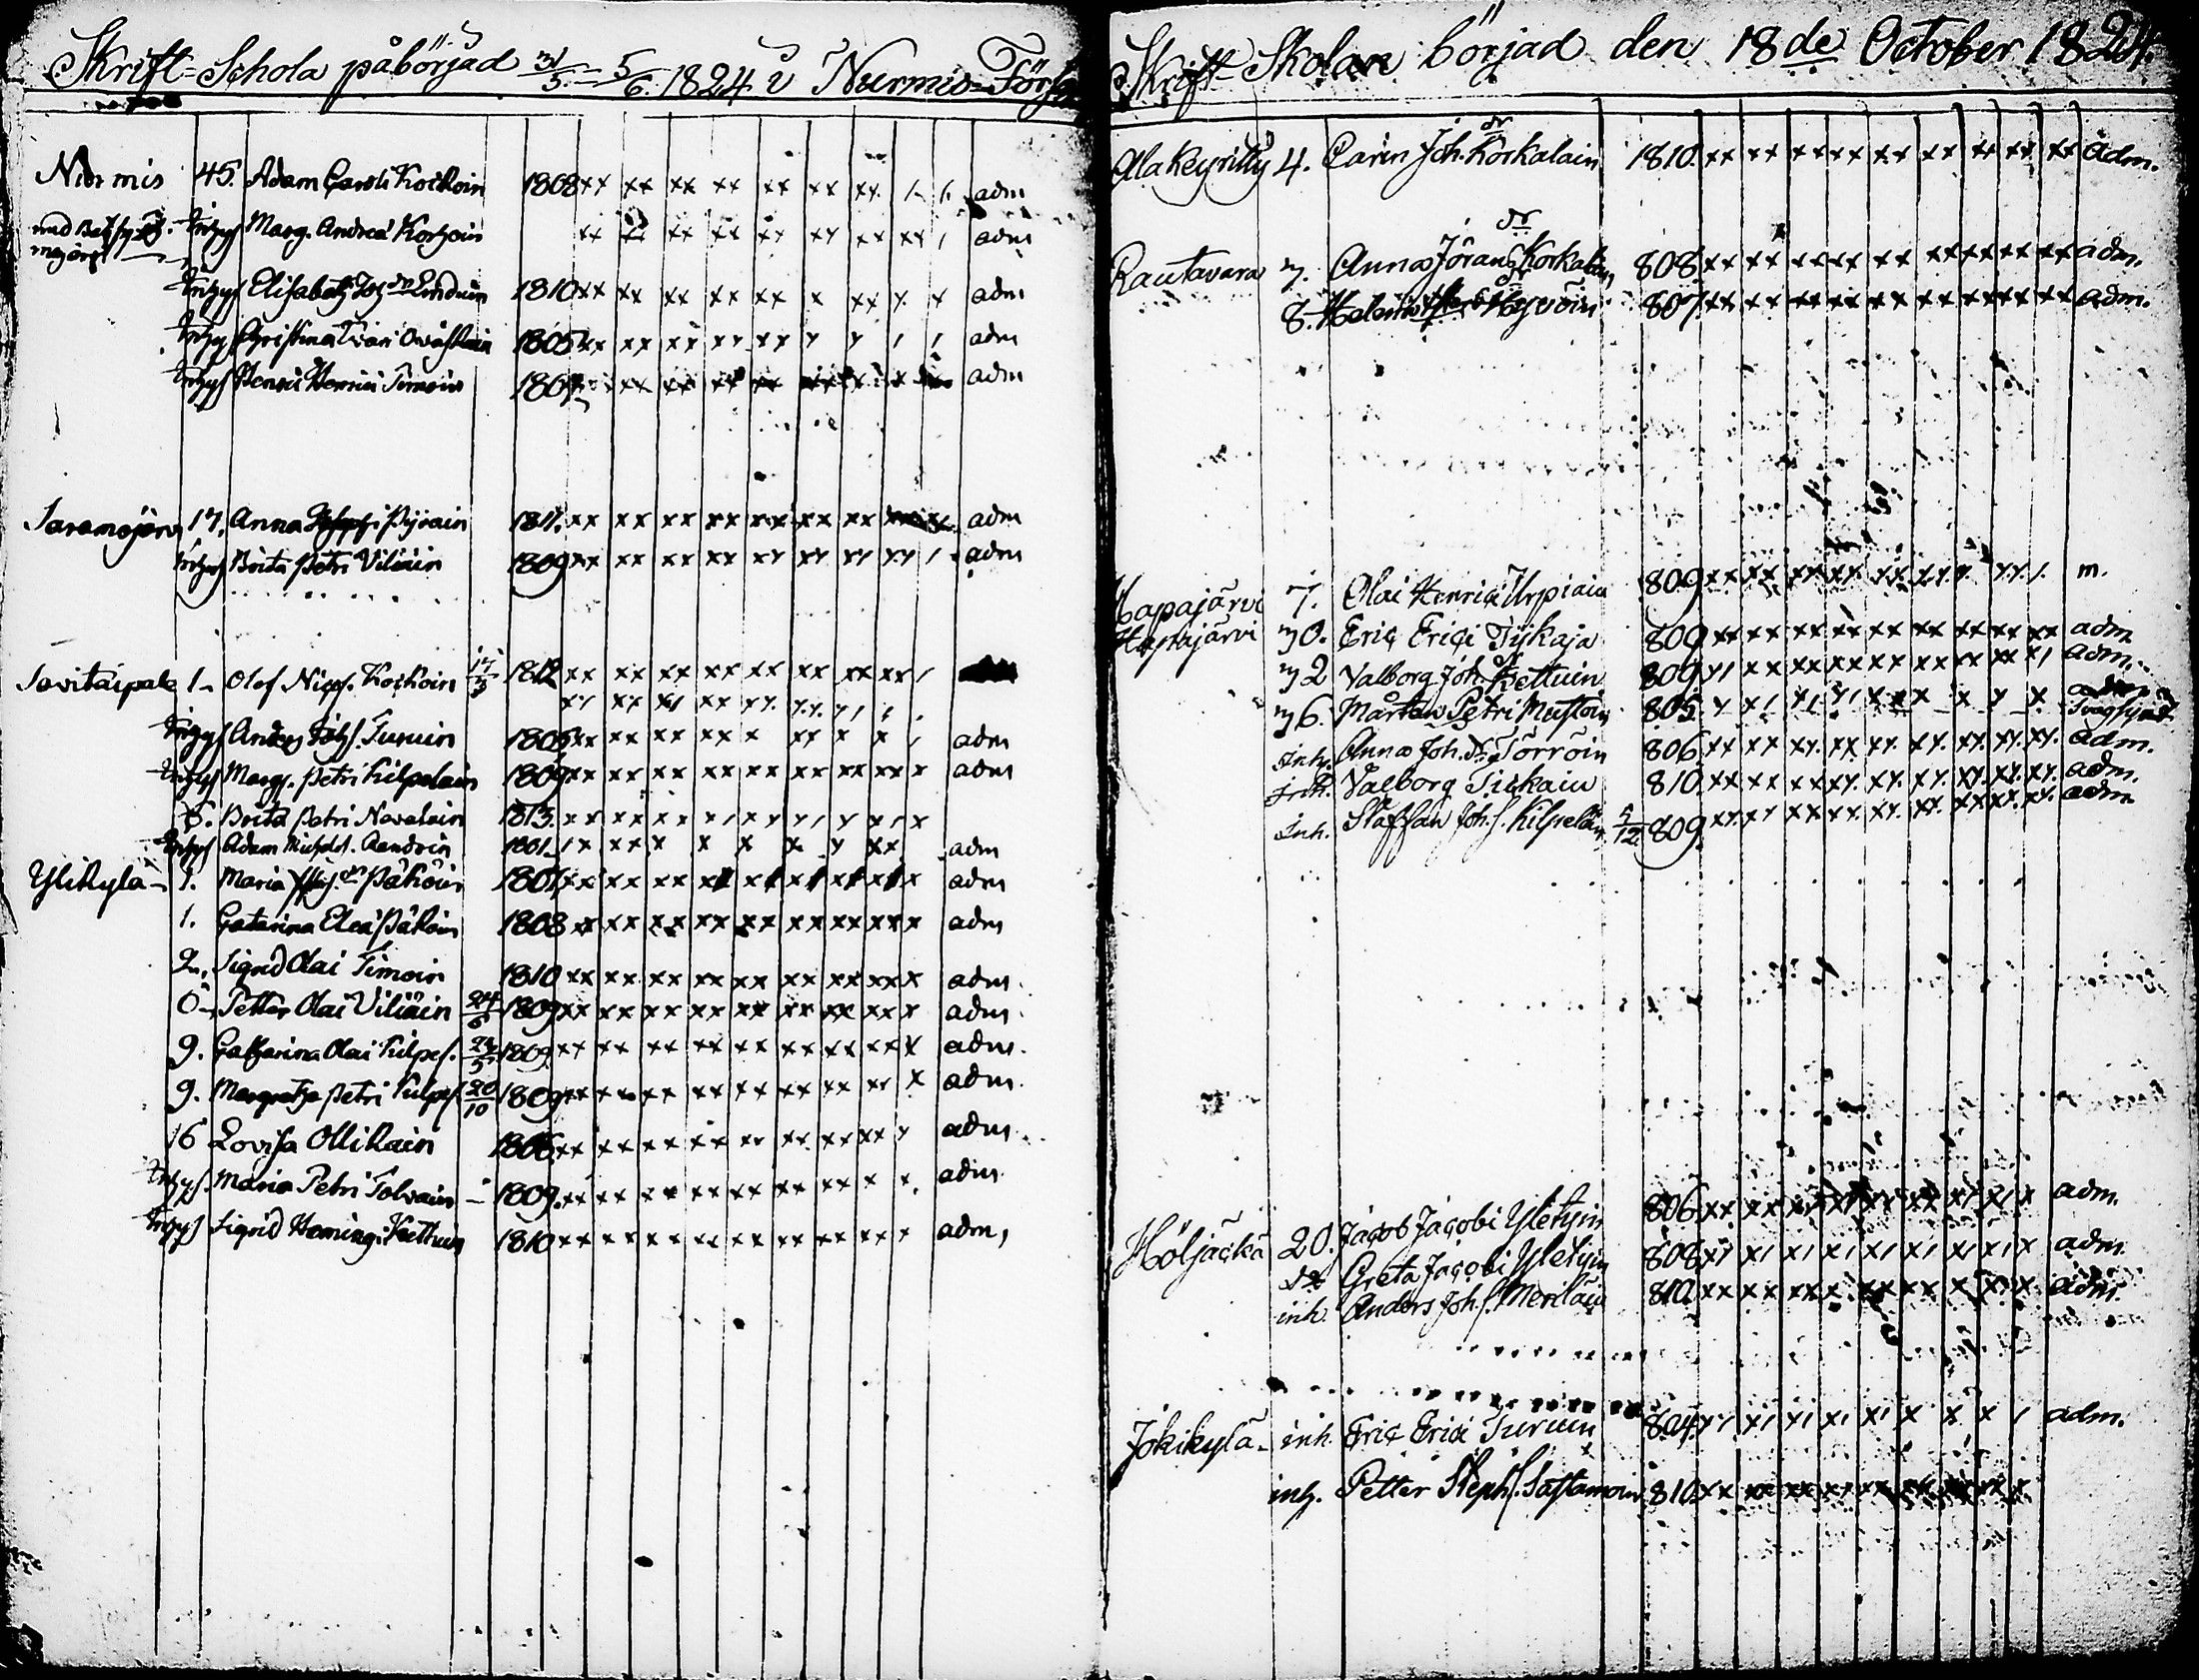 Skrift-Schola påbörjad 31/5 - 5/6 1824 i Nurmis Förs
Nurmis 45. Adam Caroli Kockoin 1808 xx xx xx xx xx xx xx 1 1 adm
inhys Marg. Andreæ Korhoin xx xx xx xx xx xx xx xx 1 adm
inhys Elisabeth Joh dr 1810 xx xx xx xx xx x xx x x adm
inhys Christina Ivari 1805 xx xx xx xx xx x x 1 1 adm
inhys Henric Henrici Timoin 180 adm
Saramojärvi 17. Anna Pyrain 1811. xx xx xx xx xx xx xx adm
inhys Brita Petri Viliain 1809 xx xx xx xx xx xx xx xx 1 adm
Savikaipale 1. Olof Nics. Kockoin 17/3 1812 xx xx xx xx xx xx xx xx 1
inhys Anders Johs. Turuin 1805 xx xx xx xx x xx x x 1 adm
inhys Margr. Petri Kilpelain 1809 xx xx xx xx xx xx xx xx x adm
8. Brita Petri Navalain 1813. xx xx xx x1 xx x1 x x1 x
inhys Adam 1801 1x xx x x x x x xx adm
Ylikylä - 1. Maria dr Påkoin 1801 xx xx xx xx xx xx xx xx x adm
1. Catarina Påkoin 1808 xx xx xx xx xx xx xx xx x adm
2. Sigrid Olai Timoin 1810 xx xx xx xx xx xx xx xx x adm.
6 - Petter Olai Viliain 24/6 1809 xx xx xx xx xx xx xx xx x adm.
9. Catharina Olai Kilpel. 24/5 1809. xx xx xx xx xx xx xx xx x adm.
9. Margretha Petri Kilpel 20/10 1809 xx xx xx xx xx xx xx xx x adm.
16 Lovisa Ollikain 1806 xx xx xx xx xx xx xx xx x adm.
inhys. Maria Petri Tolvain - 1809. xx xx xx xx xx xx xx x x. adm
inhys Sigrid Hemingi Kettuin 1810 xx xx xx xx xx xx xx xx x adm,
Skrift-Skolan börjad den 18de October 1824.
Alakeyritty 4. Carin Joh. dr Korkalain 1810. xx xx xx xx xx xx x xx xx adm.
Rautavara 7. Anna Jöran dr Korkalain 808 xx xx xx xx xx xx xx xx xx adm.
8. Helena 807. xx xx xx xx xx xx xx xx xx adm.
Hapajärvi 7. Olai Henrici Urpiain 809 xx xx xx xx xx xx x xx 1. m.
Hapajärvi 30. Eric Erici Tykaja 809 xx xx xx xx xx xx xx xx xx adm
32 Valborg Joh. dr Kettuin 809 x1 xx xx xx xx xx xx xx x1 adm.
36. Mårten Petri Mustoin 805. x x1 x1 x1 xx x x x x
inh. Anna Joh. dr Törröin 806. xx xx xx. xx xx. xx. xx. xx. xx. adm.
inh. Valborg Tickain 810. xx xx xx xx. xx. xx. xx. xx. xx. adm.
inh. Staffan Joh. s. Kilpelän 5/12 809. xx. xx xx xx. xx. xx. xx xx. xx. adm
Höljäckä 20. Jacob Jacobi Yletyin 806 xx xx xx xx xx xx x1 x1 x adm.
Greta Jacobi Yletyin 808 x1 x1 x1 x1 x1 x1 x1 x1 x adm.
inh. Anders Joh. s. Merilain 810. xx xx xx x xx xx x x x adm.
Jokikylä - inh. Eric Erici Turuin 804 x1 x1 x1 x1 x1 x x x 1 adm.
inh. Petter Steph s. Sastamoin 810. xx xx xx xx xx xx xx xx x